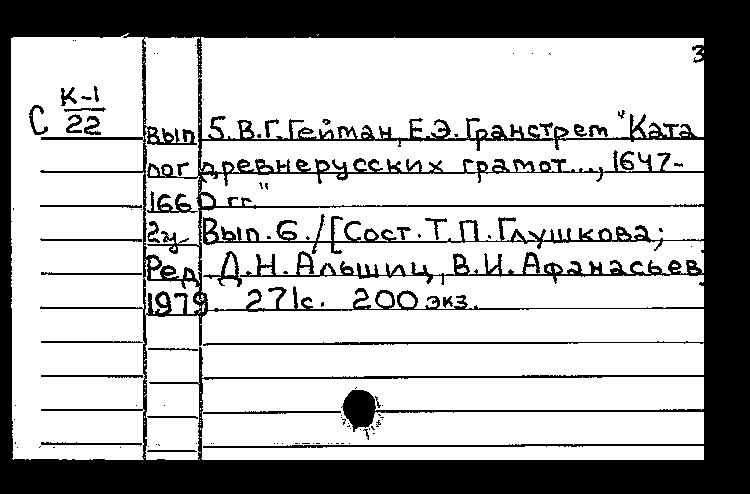 3
С К-1
22
Вып 5. В.Г. Гейман, Е.Э. Гранстрем "Ката
лог древнерусских грамот..., 1647-
1660 гг."
2э Вып. 6. / [Сост. Т.П. Глушкова;
Ред Д.Н. Альшиц, В.И. Афанасьев]
1979. 271с. 200 экз.